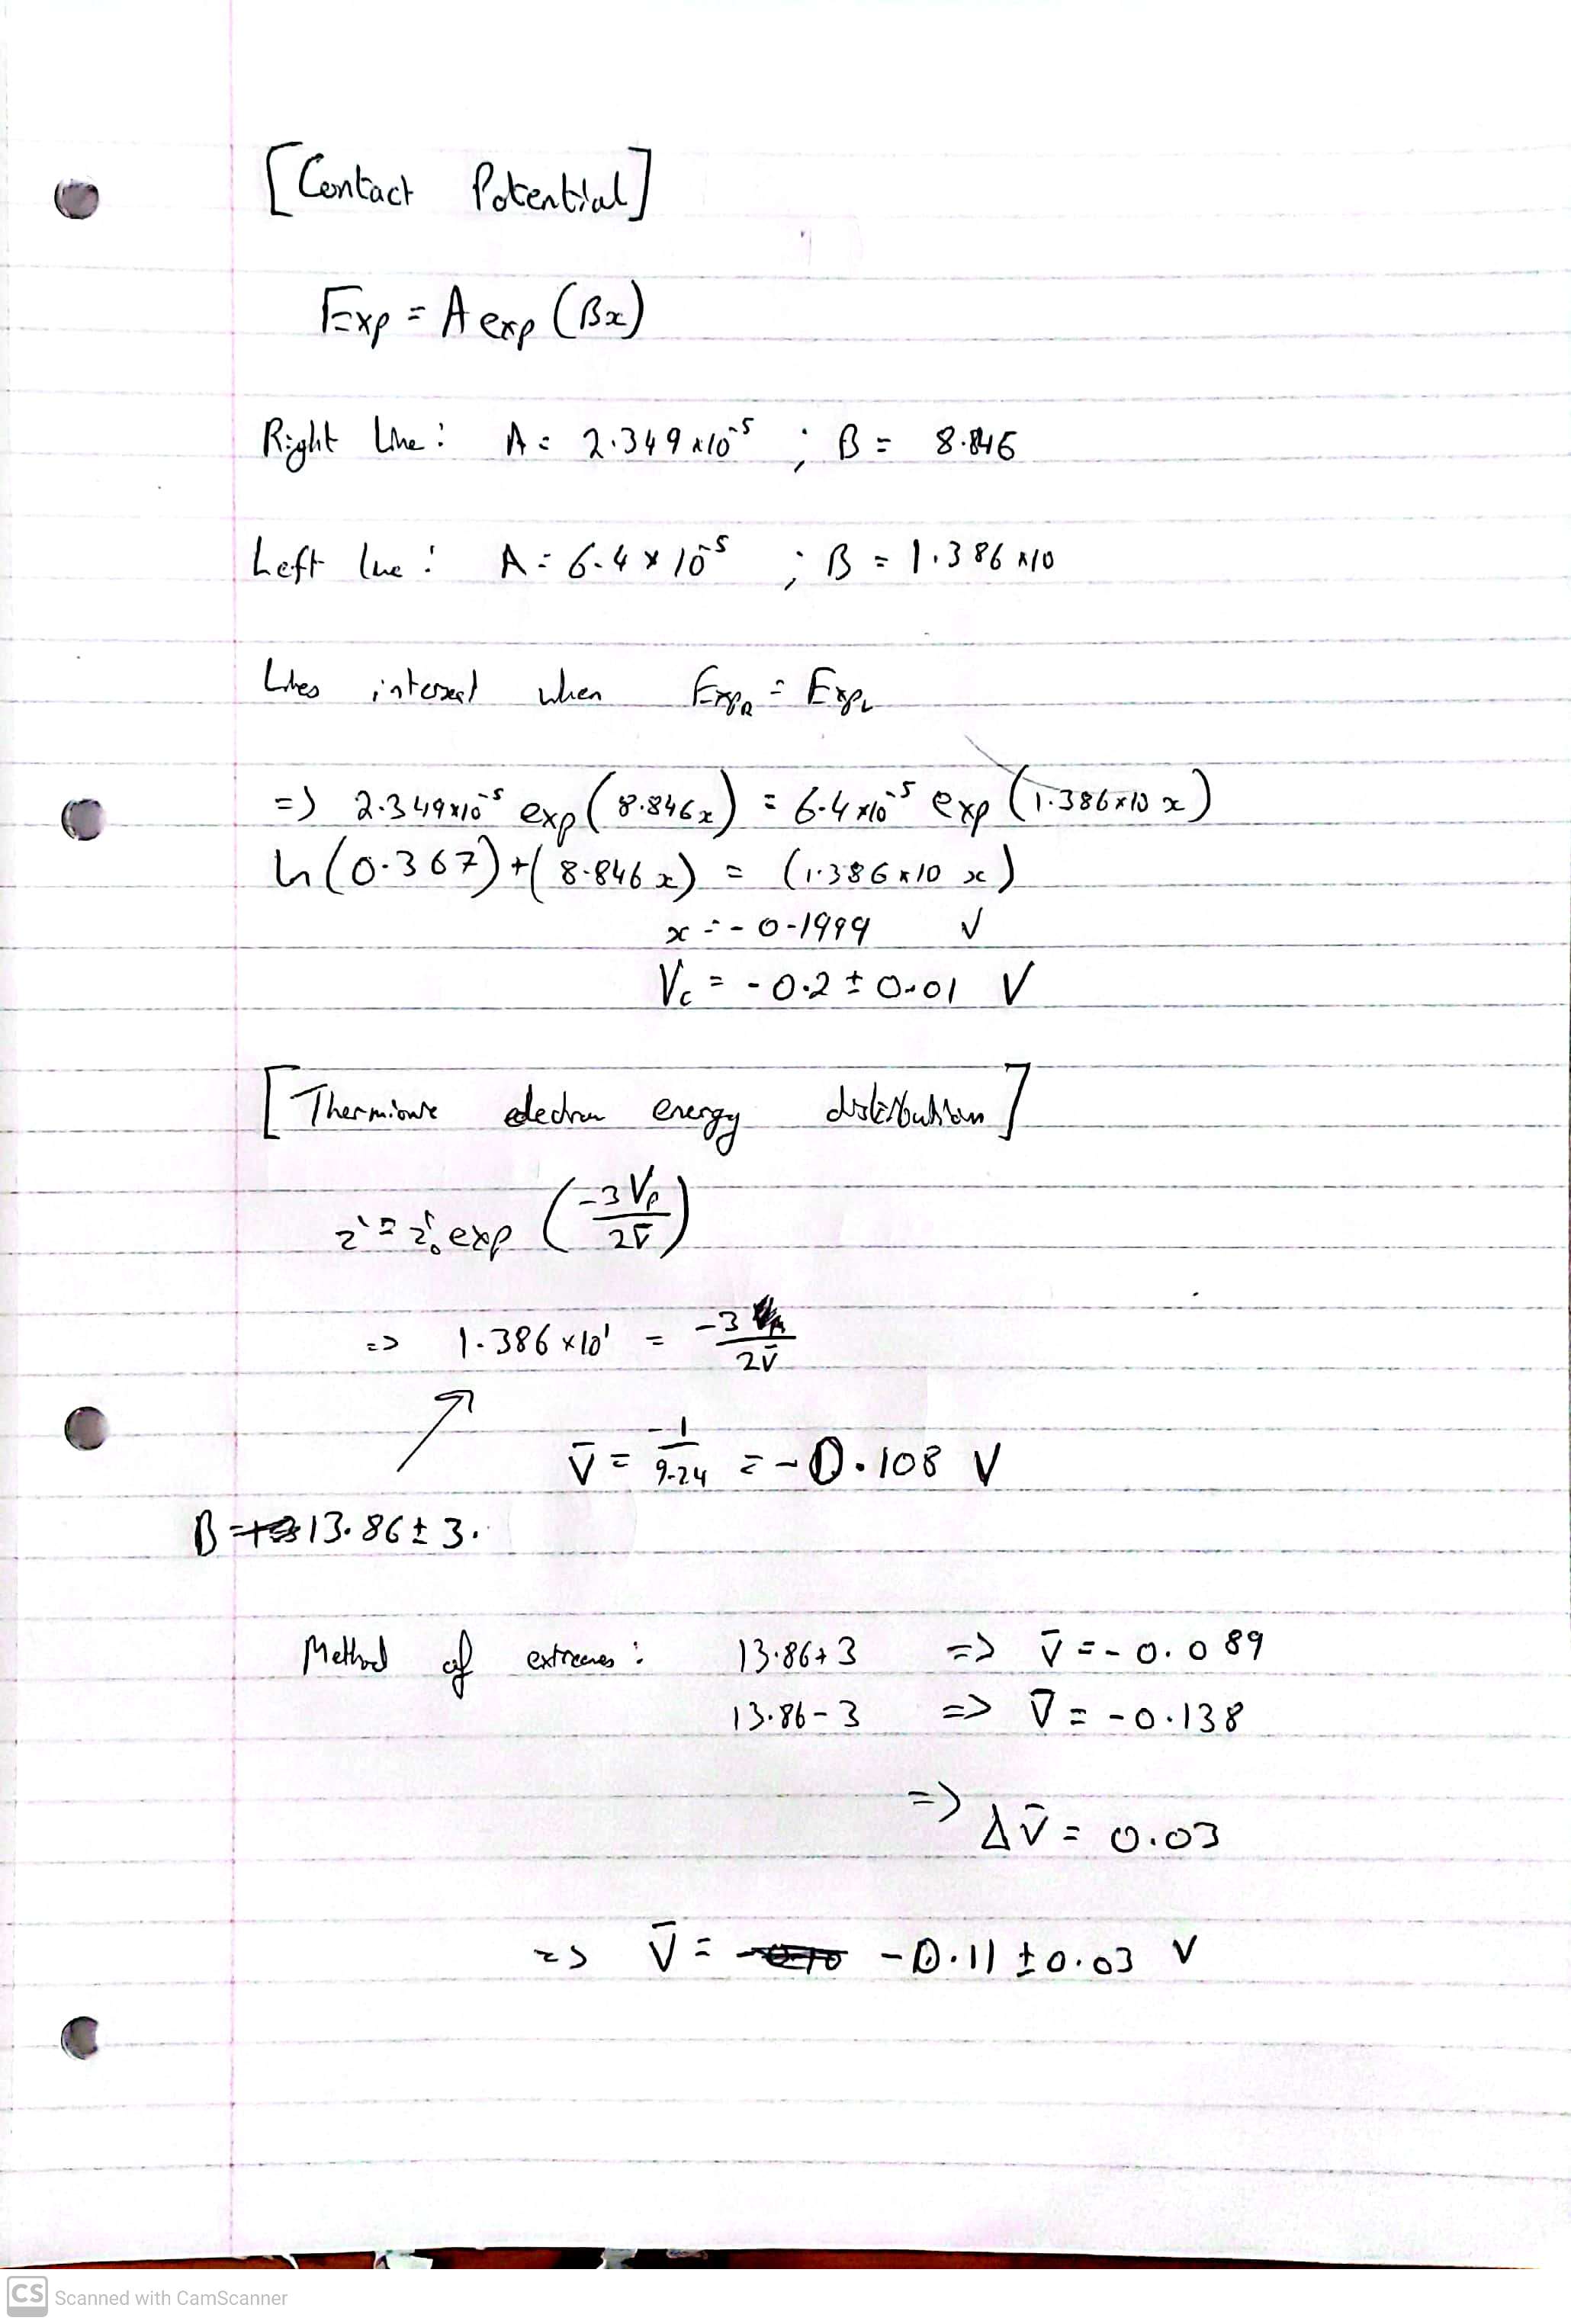 [Contact Potential]
Exp = A exp (Bx)
Right line: A = 2.349x10^-5 ; B = 8.846
Left line: A = 6.4 x 10^-5 ; B = 1.386 x10
Lines intersect when Exp_R = Exp_L
=> 2.349x10^-5 exp (8.846x) = 6.4x10^-5 exp (1.386x10 x)
ln(0.367) + (8.846x) = (1.386x10 x)
x = -0.1999 V
Vc = -0.2 ± 0.01 V
[Thermionic electron energy distribution]
i = i₀ exp (-3Vp / 2V̄)
=> 1.386 x10^1 = -3 / 2V̄
V̄ = -1 / 9.24 = -0.108 V
B = 13.86 ± 3.
Method of extremes: 13.86+3 => V̄ = -0.089
13.86-3 => V̄ = -0.138
=> ΔV̄ = 0.03
=> V̄ = -0.11 ± 0.03 V
CS Scanned with CamScanner